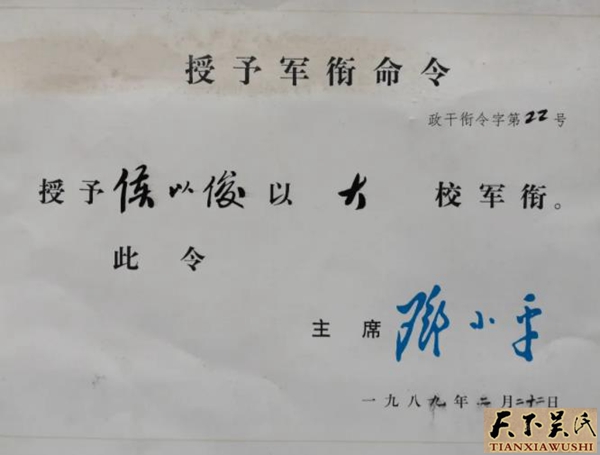 授予军衔命令
政干衔令字第22号
授予侯以俊以 大 校军衔。
此令
主席 邓小平
一九八九年二月二十二日
天下吴氏
TIANXIAWUSHI